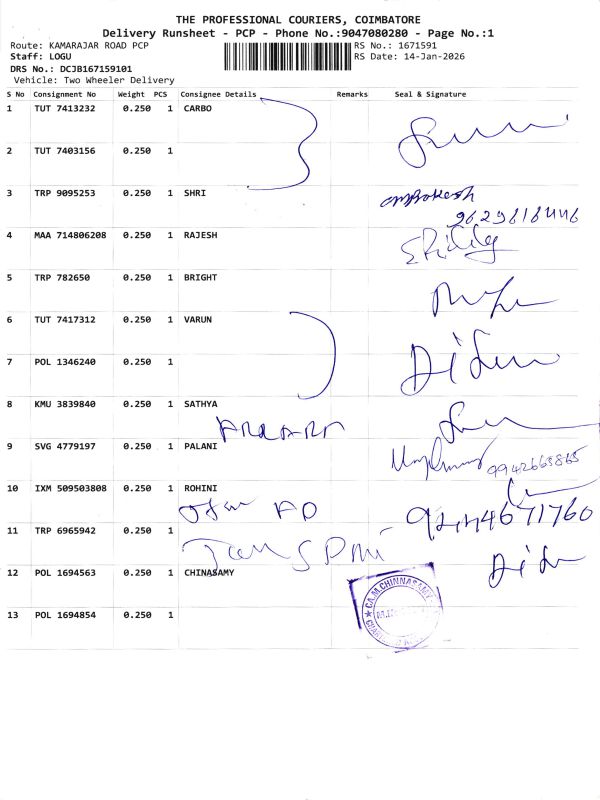 THE PROFESSIONAL COURIERS, COIMBATORE
Delivery Runsheet - PCP - Phone No.:9047080280 - Page No.:1
Route: KAMARAJAR ROAD PCP RS No.: 1671591
Staff: LOGU RS Date: 14-Jan-2026
DRS No.: DCJB167159101
Vehicle: Two Wheeler Delivery
S No Consignment No Weight PCS Consignee Details Remarks Seal & Signature
1 TUT 7413232 0.250 1 CARBO
2 TUT 7403156 0.250 1
3 TRP 9095253 0.250 1 SHRI
9629616446
4 MAA 714806208 0.250 1 RAJESH
5 TRP 782650 0.250 1 BRIGHT
6 TUT 7417312 0.250 1 VARUN
7 POL 1346240 0.250 1
8 KMU 3839840 0.250 1 SATHYA
9 SVG 4779197 0.250 1 PALANI
9942665865
10 IXM 509503808 0.250 1 ROHINI
11 TRP 6965942 0.250 1
12 POL 1694563 0.250 1 CHINASAMY
CA.M.CHINNASAMY
13 POL 1694854 0.250 1